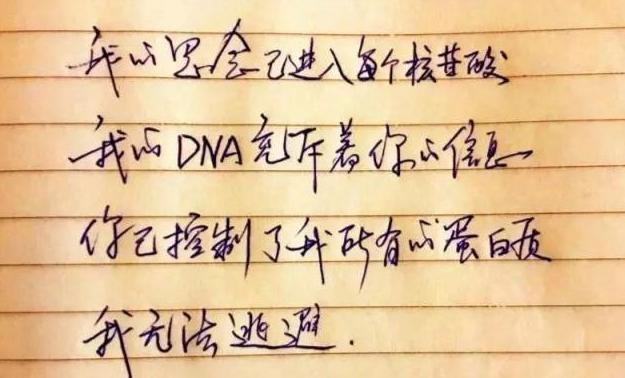 我的思念已进入每个核苷酸
我的DNA充斥着你的信息
你已控制了我所有的蛋白质
我无法逃避.